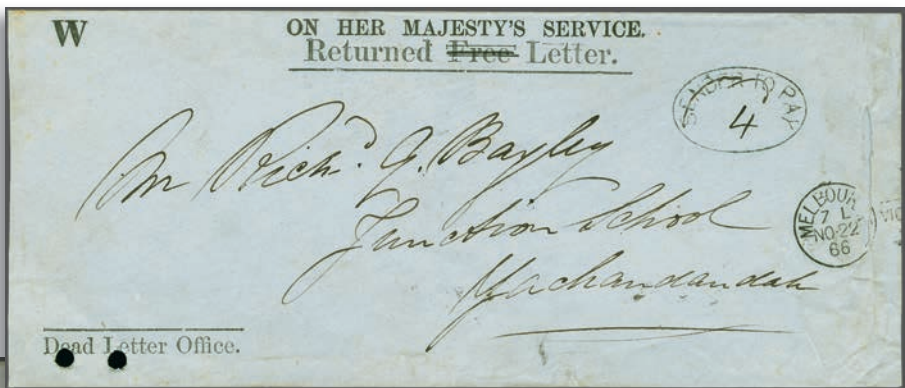 W
ON HER MAJESTY'S SERVICE.
Returned Free Letter.
SENDER TO PAY
4
Mr Richd. J. Bayley
Junction School
Yachandandah
MELBOUR
7 L
NO 22
66
VIC
Dead Letter Office.